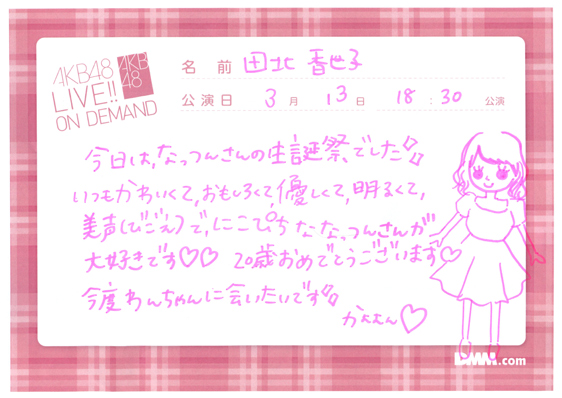 AKB48
LIVE!!
ON DEMAND
AKB
48
名 前 田北 香世子
公演日 3月 13日 18:30 公演
今日は、なっつんさんの生誕祭でした!!
いつもかわいくて、おもしろくて、優しくて、明るくて、
美声(びごえ)で、にこぴち ななっつんさんが
大好きです♡♡ 20歳おめでとうございます♡
今度わんちゃんに会いたいです!!
かよよん♡
DMM.com